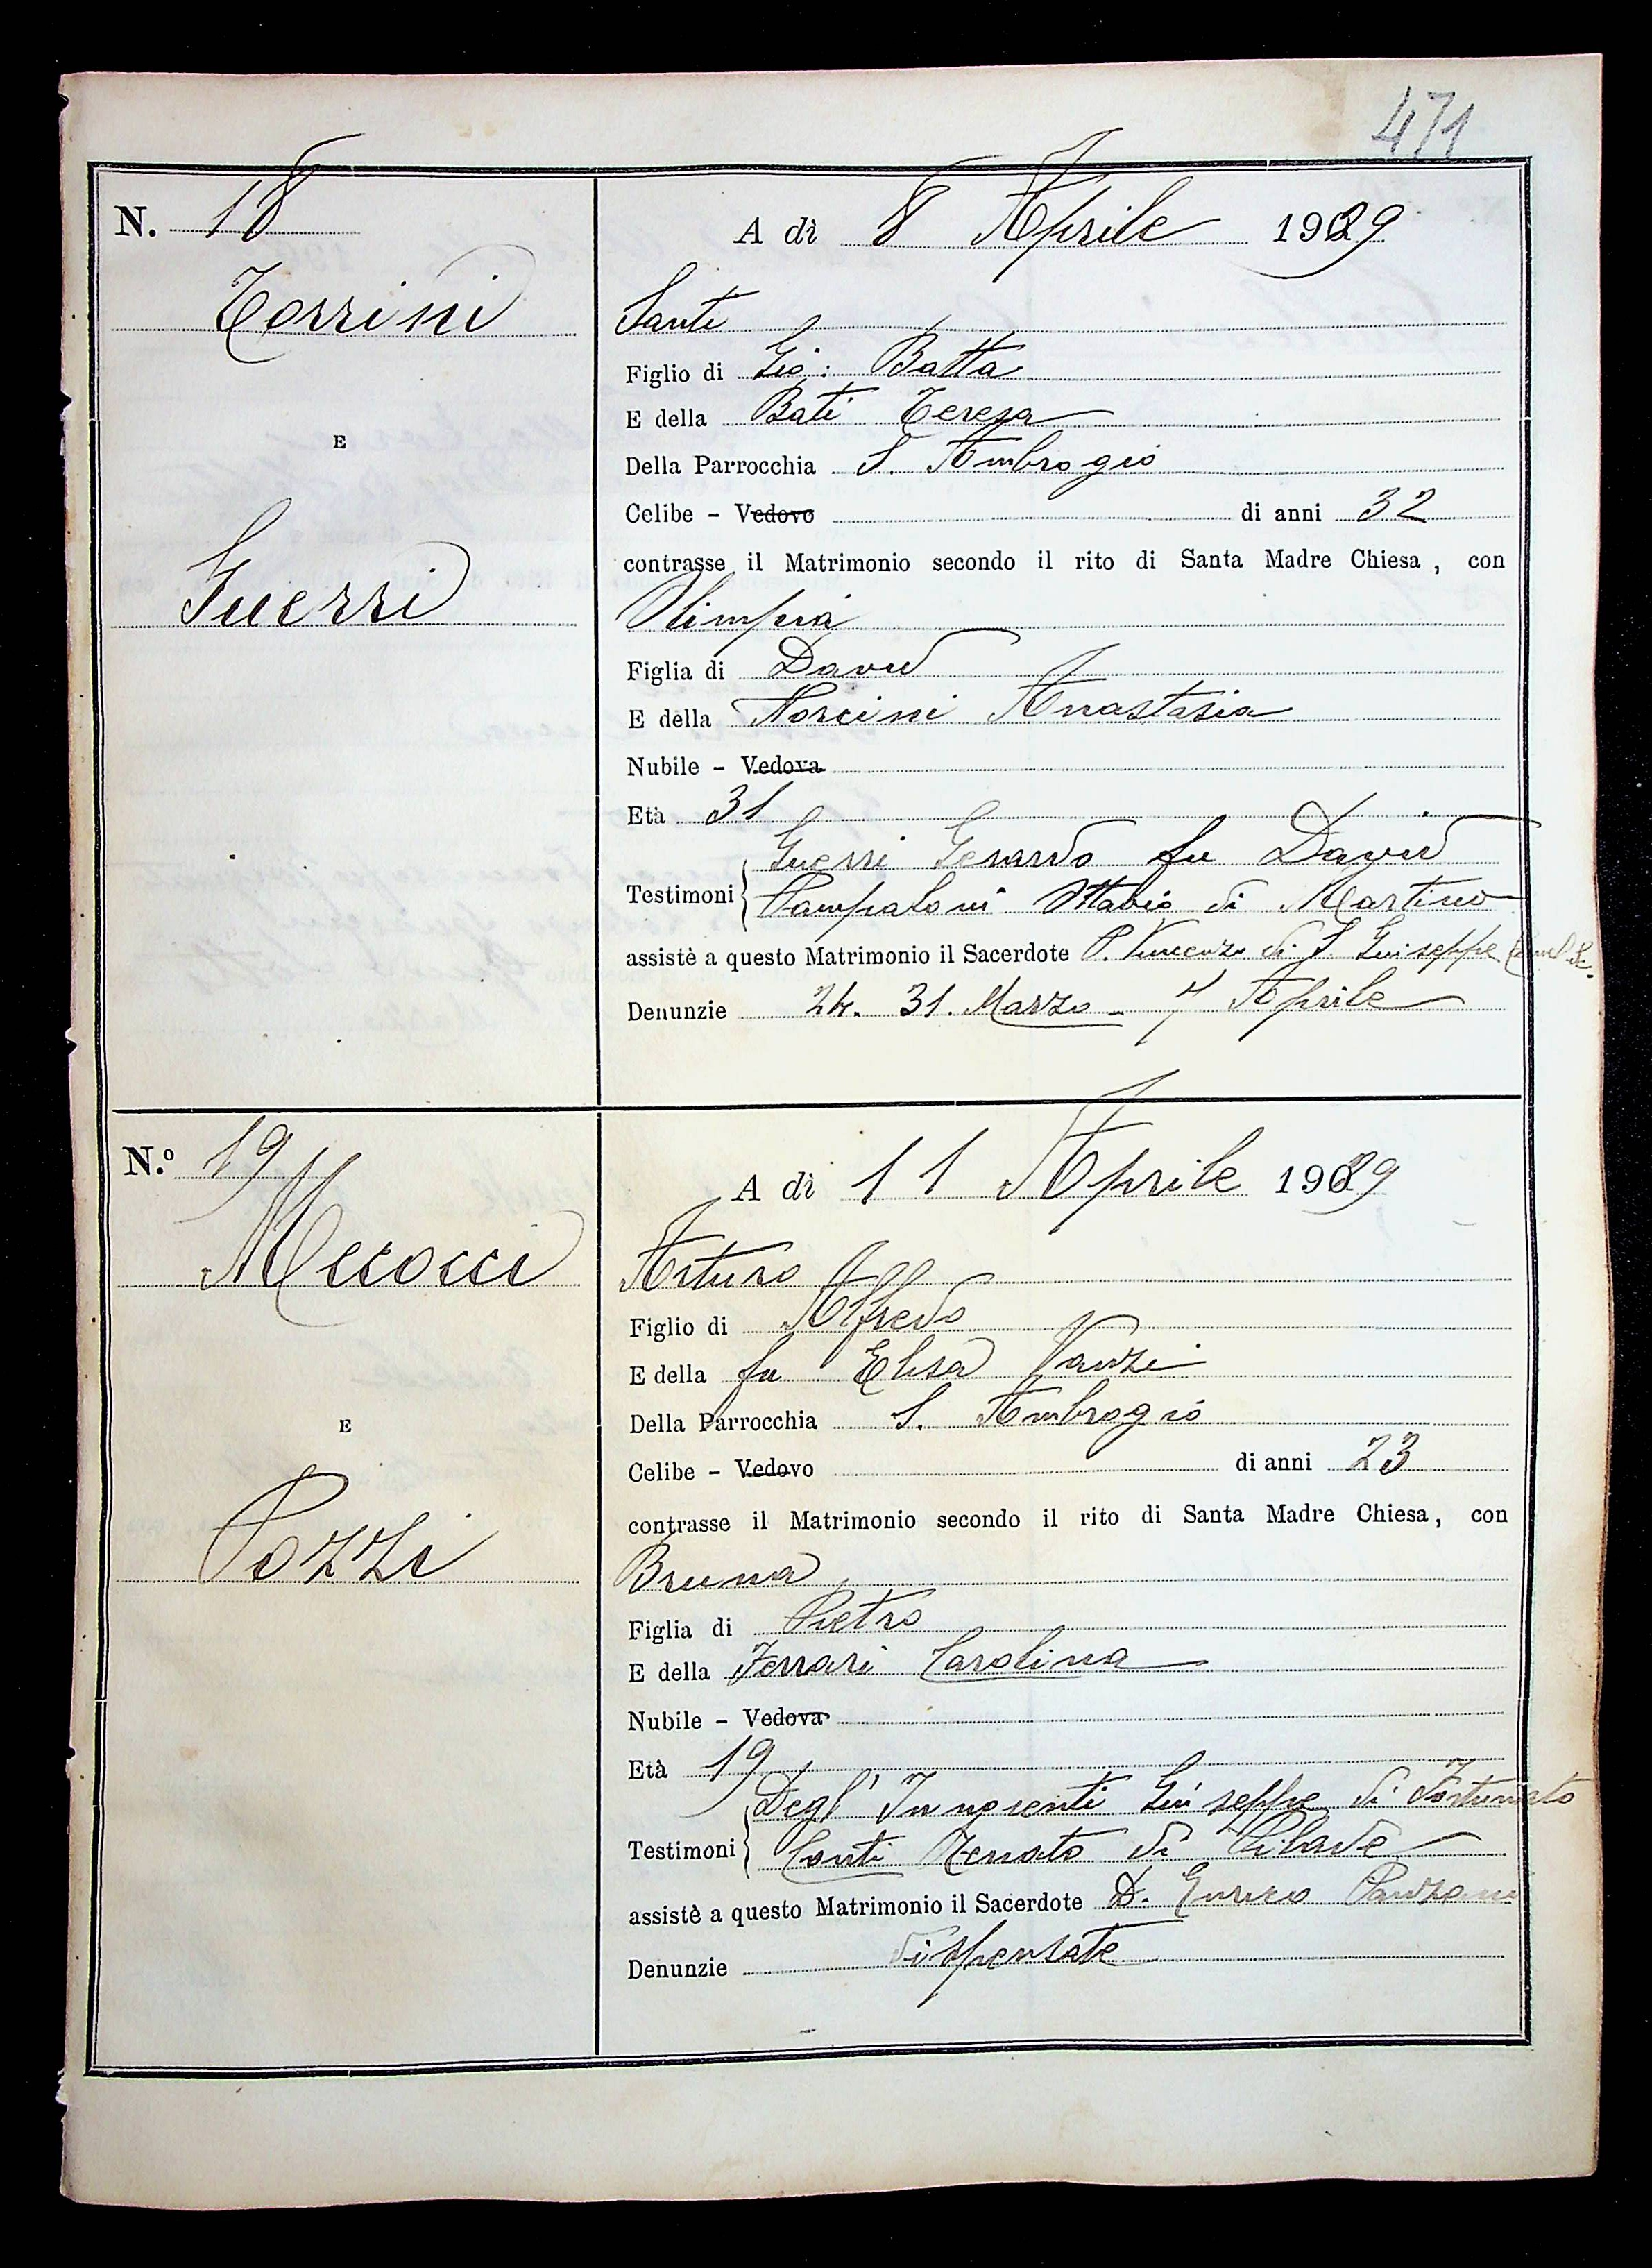 471
N. 18
A dì 8 Aprile 1929
Torrini
Santi
Figlio di Gio: Batta
E della Bati Teresa
E
Della Parrocchia S. Ambrogio
Celibe - Vedovo di anni 32
contrasse il Matrimonio secondo il rito di Santa Madre Chiesa, con
Guerri
Olimpia
Figlia di David
E della Norcini Anastasia
Nubile - Vedova
Età 31
Testimoni { Guerri Gerardo fu David
Pampaloni Ottavio di Martino
assistè a questo Matrimonio il Sacerdote P. Vincenzo di S. Giuseppe
Denunzie 24. 31. Marzo - 7 Aprile
N.º 19
A dì 11 Aprile 1929
Mecocci
Arturo
Figlio di Alfredo
E della fu Elisa Vanzi
Della Parrocchia S. Ambrogio
E
Celibe - Vedovo di anni 23
contrasse il Matrimonio secondo il rito di Santa Madre Chiesa, con
Pozzi
Bruna
Figlia di Pietro
E della Ferrari Carolina
Nubile - Vedova
Età 19
Testimoni { Degl' Innocenti Giuseppe di Fortunato
Conti Renato di Pilade
assistè a questo Matrimonio il Sacerdote D. Enrico Panzani
Denunzie dispensate